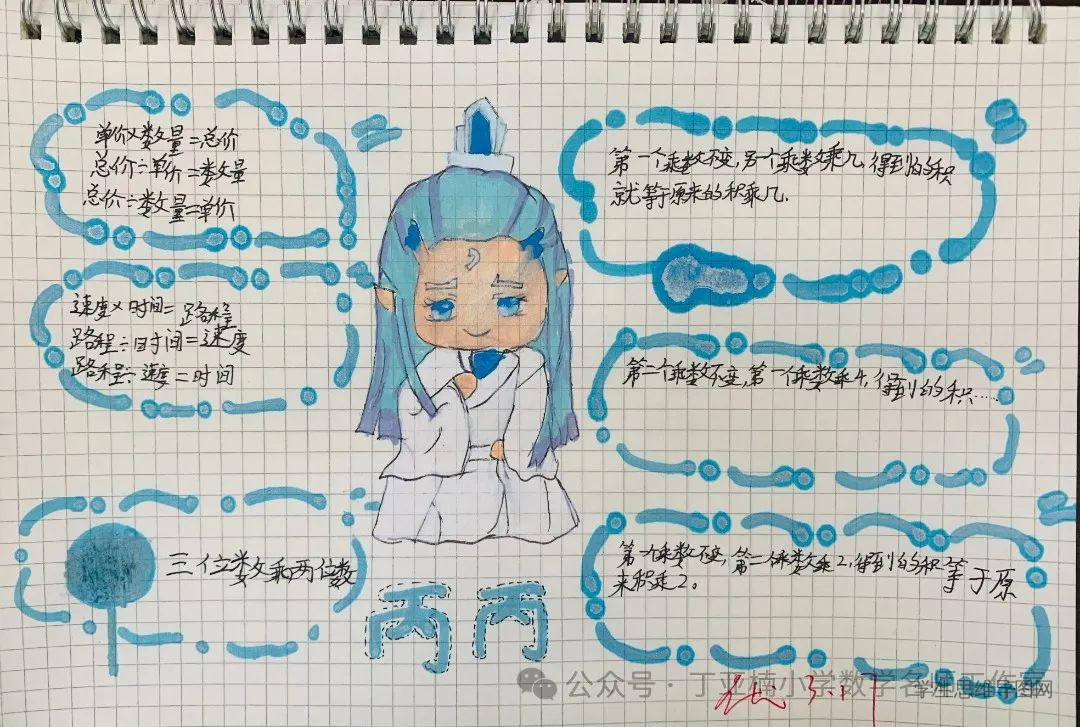 单价×数量=总价
总价÷单价=数量
总价÷数量=单价
速度×时间=路程
路程÷时间=速度
路程÷速度=时间
三位数乘两位数
丙丙
第一个乘数不变,另一个乘数乘几,得到的积
就等于原来的积乘几.
第二个乘数不变,第一个乘数乘4,得到的积……
第一个乘数不变,第二个乘数乘2,得到的积等于原
来积乘2。
公众号·丁亚楠小学数学名
学生思维导图网